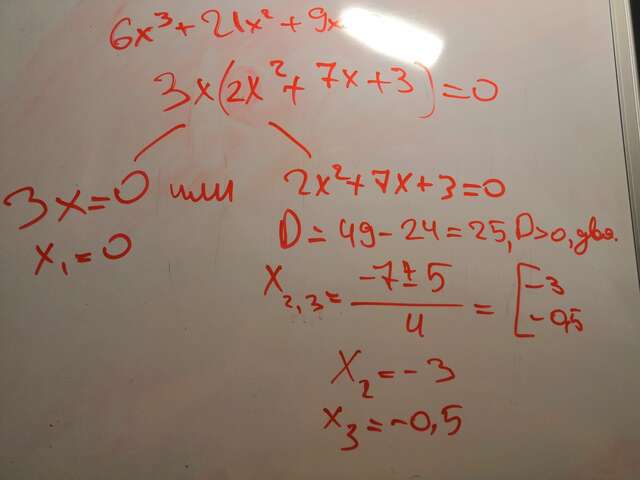 6x³ + 21x² + 9x
3x(2x² + 7x + 3) = 0
3x = 0 или 2x² + 7x + 3 = 0
x₁ = 0
D = 49 - 24 = 25, D > 0, два.
x₂,₃ = (-7 ± 5) / 4 = [ -3
-0,5
x₂ = -3
x₃ = -0,5